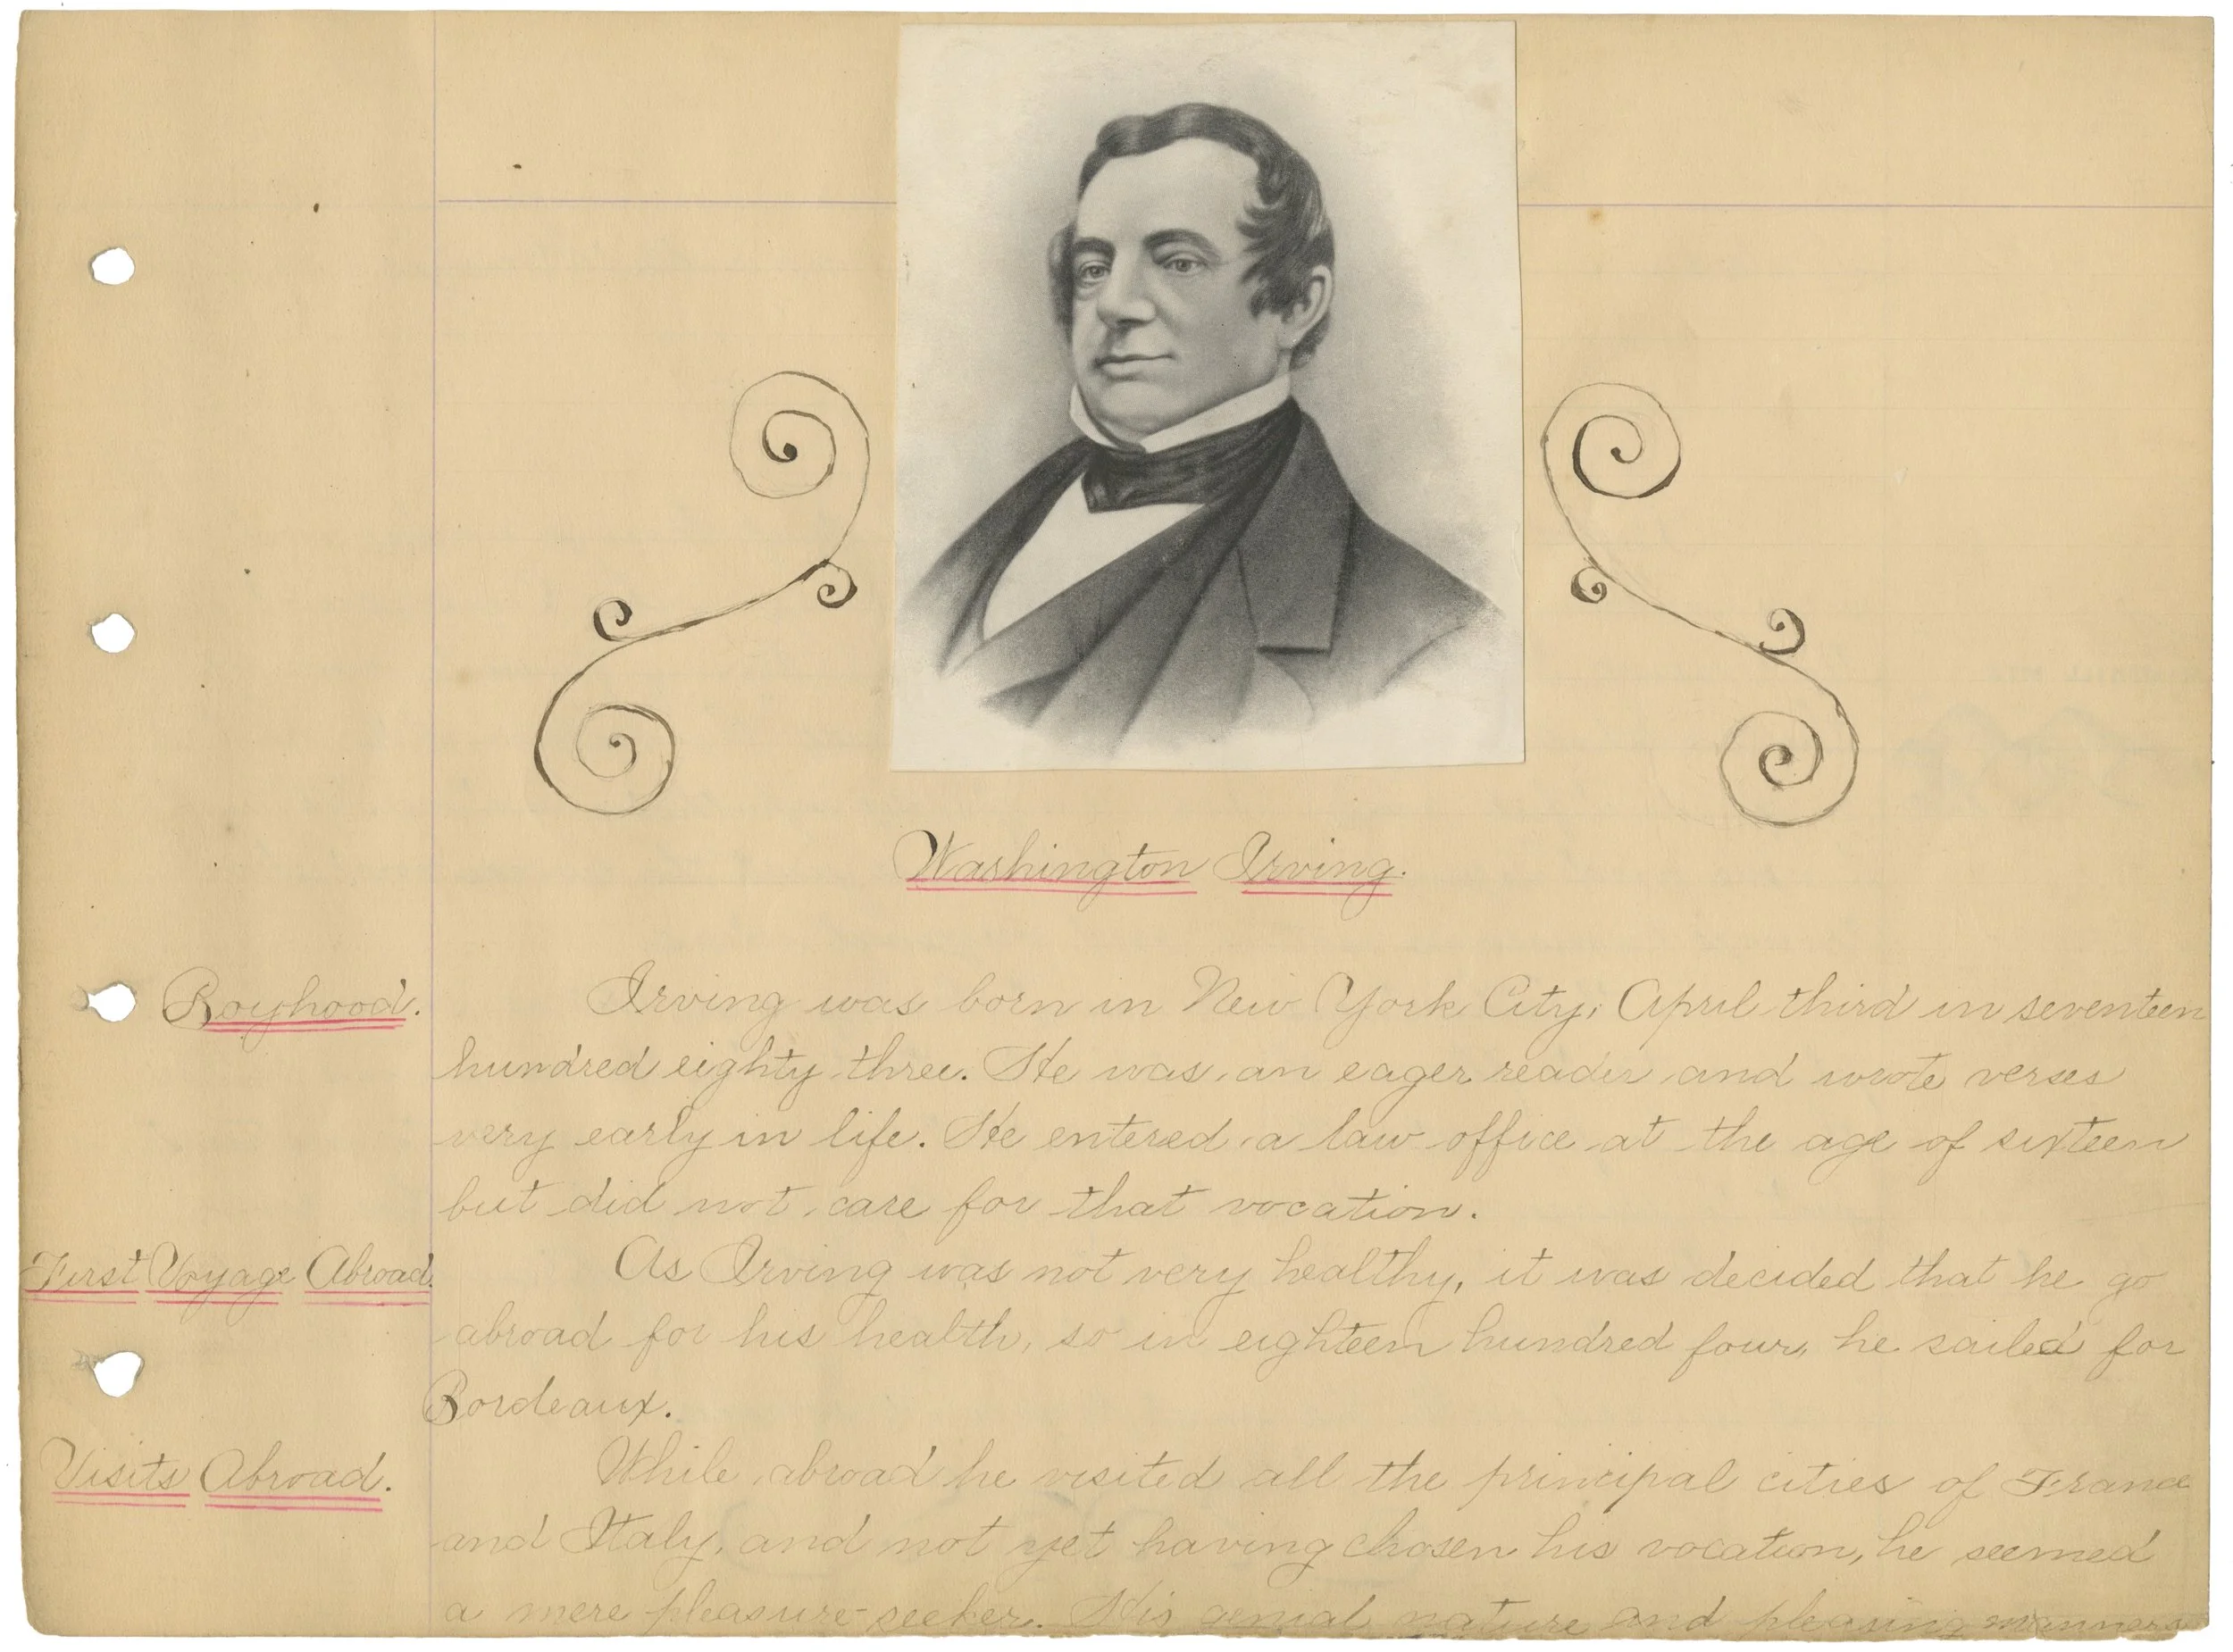 Washington Irving.
Boyhood.
Irving was born in New York City, April third in seventeen
hundred eighty three. He was an eager reader and wrote verses
very early in life. He entered a law office at the age of sixteen
but did not care for that vocation.
First Voyage Abroad.
As Irving was not very healthy, it was decided that he go
abroad for his health, so in eighteen hundred four, he sailed for
Bordeaux.
Visits Abroad.
While abroad he visited all the principal cities of France
and Italy, and not yet having chosen his vocation, he seemed
a mere pleasure-seeker. His genial nature and pleasing manners